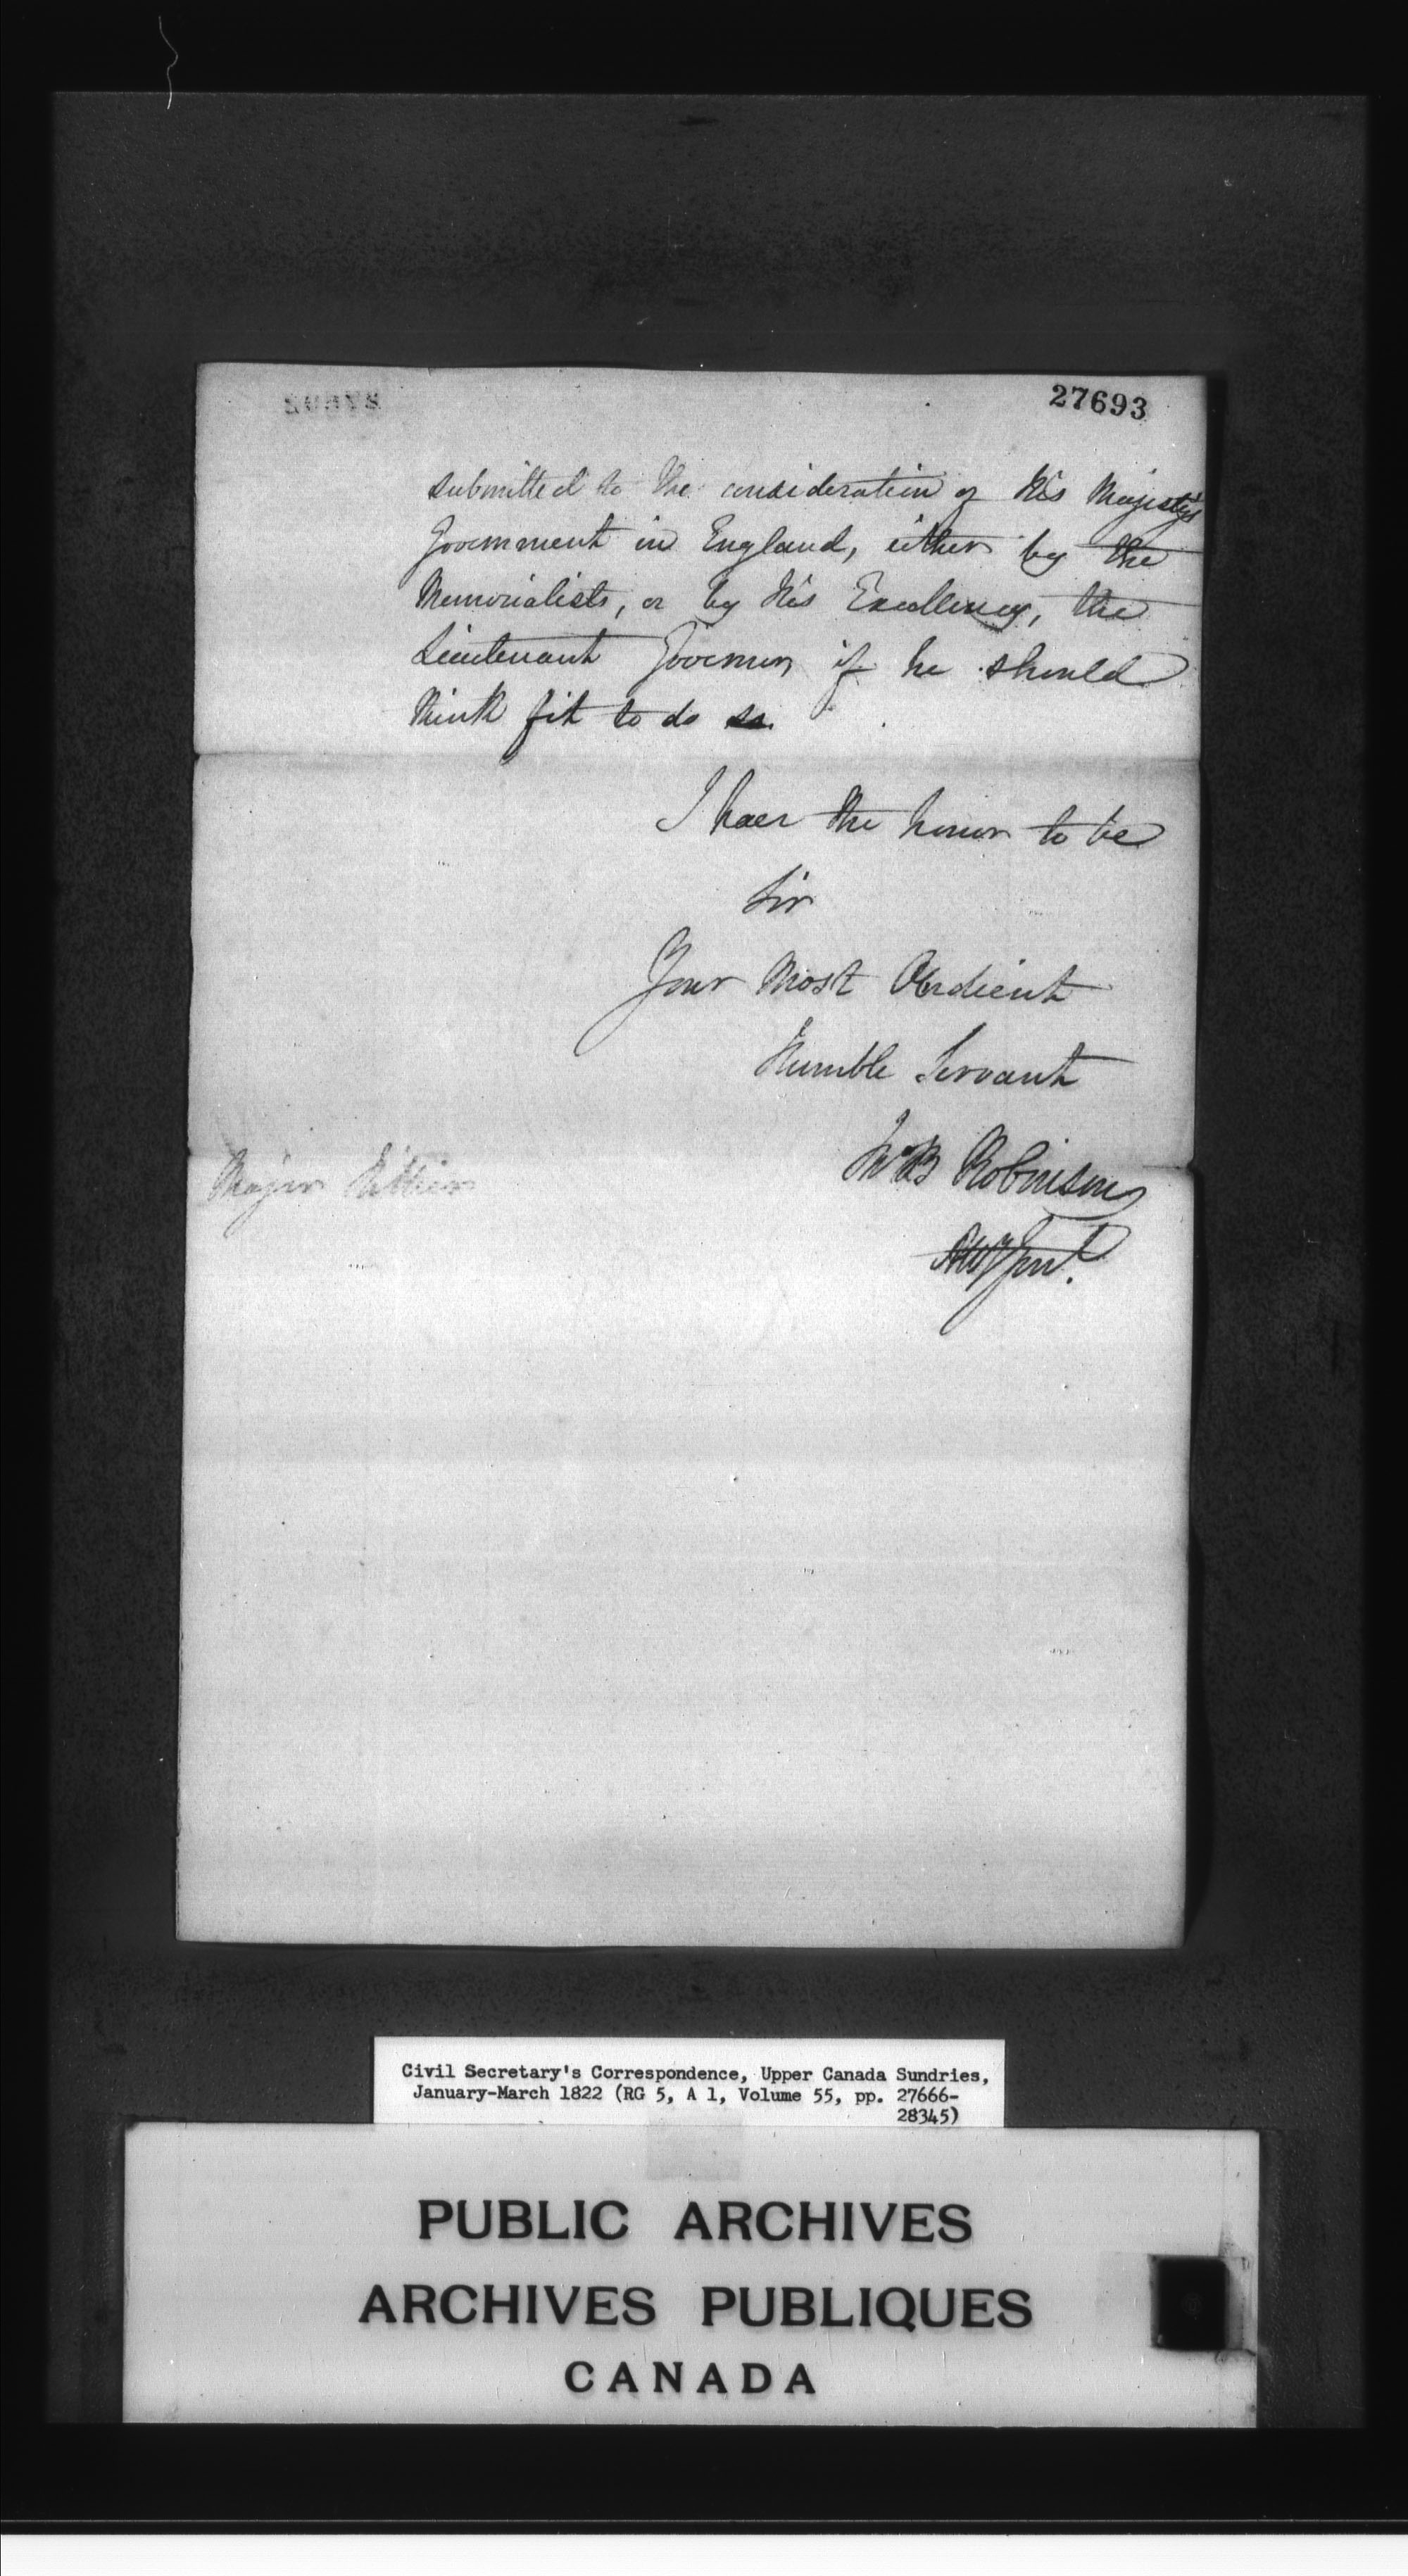 27693
submitted to the consideration of His Majesty's
Government in England, either by the
Memorialists, or by His Excellency, the
Lieutenant Governor if he should
think fit to do so.
I have the honor to be
Sir
Your Most Obedient
Humble Servant
Jno B Robinson
Atty Genl.
Major Hillier
Civil Secretary's Correspondence, Upper Canada Sundries,
January-March 1822 (RG 5, A 1, Volume 55, pp. 27666-
28345)
PUBLIC ARCHIVES
ARCHIVES PUBLIQUES
CANADA